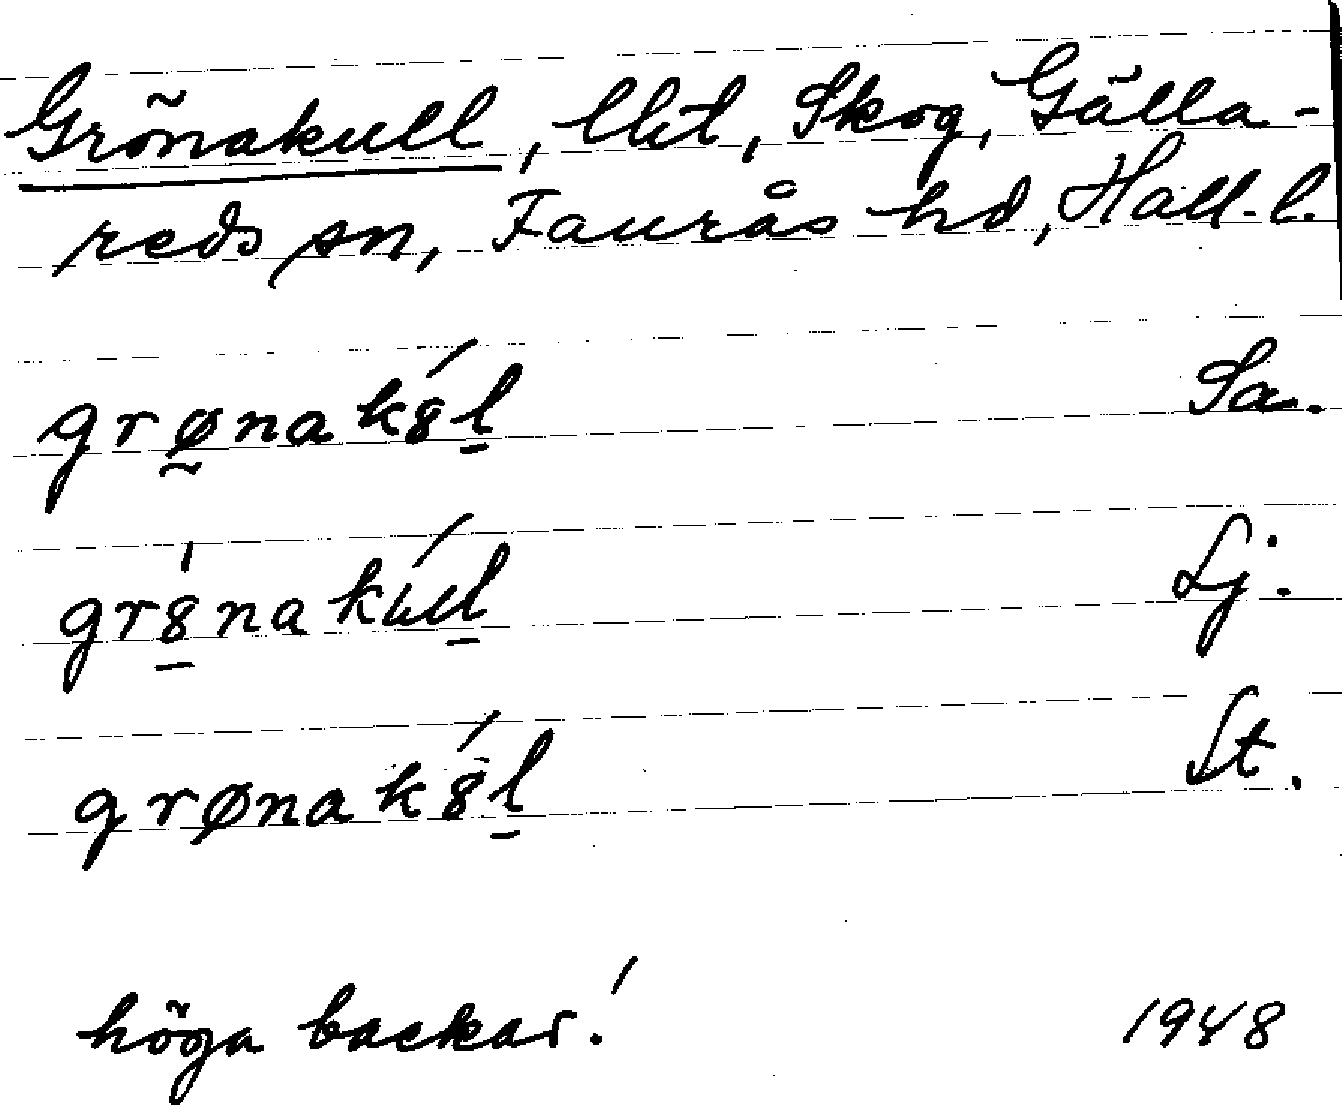 Grönakull, lht, Skog, Gälla-
reds sn, Faurås hd, Hall. l.
grø̰nak8́l̲ Sa.
gr8̲́nakúl̲ Lj.
grønak8́l̲ St.
höga backar! 1948